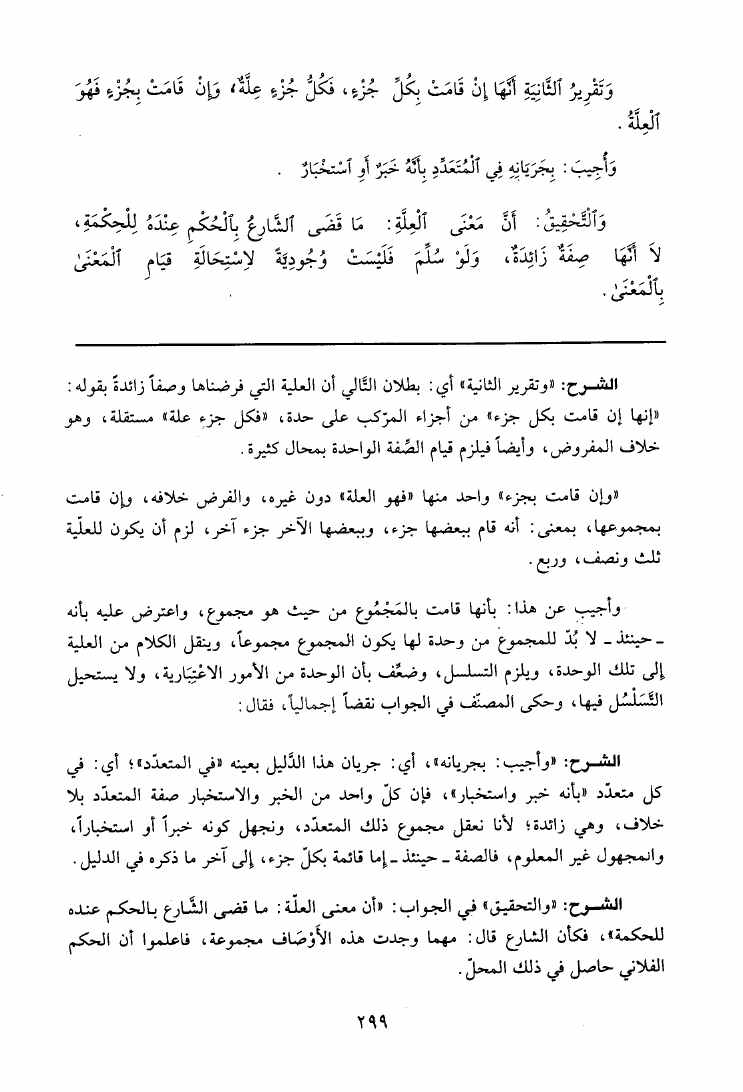 وَتَقْرِيرُ ٱلثَّانِيَةِ أَنَّهَا إِنْ قَامَتْ بِكُلِّ جُزْءٍ، فَكُلُّ جُزْءٍ عِلَّةٌ، وَإِنْ قَامَتْ بِجُزْءٍ فَهُوَ
ٱلْعِلَّةُ .
وَأُجِيبَ: بِجَرَيَانِهِ فِي ٱلْمُتَعَدِّدِ بِأَنَّهُ خَبَرٌ أَوِ ٱسْتِخْبَارٌ .
وَٱلتَّحْقِيقُ: أَنَّ مَعْنَى ٱلْعِلَّةِ: مَا قَضَى ٱلشَّارِعُ بِٱلْحُكْمِ عِنْدَهُ لِلْحِكْمَةِ،
لاَ أَنَّهَا صِفَةٌ زَائِدَةٌ، وَلَوْ سُلِّمَ فَلَيْسَتْ وُجُودِيَّةً لاِسْتِحَالَةِ قِيَامِ ٱلْمَعْنَىٰ
بِٱلْمَعْنَىٰ.
الشــرح: «وتقرير الثانية» أي: بطلان التَّالي أن العلية التي فرضناها وصفاً زائدةً بقوله:
«إنها إن قامت بكل جزء» من أجزاء المركب على حدة، «فكل جزء علة» مستقلة، وهو
خلاف المفروض، وأيضاً فيلزم قيام الصِّفة الواحدة بمحال كثيرة.
«وإن قامت بجزء» واحد منها «فهو العلة» دون غيره، والفرض خلافه، وإن قامت
بمجموعها، بمعنى: أنه قام ببعضها جزء، وببعضها الآخر جزء آخر، لزم أن يكون للعلّية
ثلث ونصف، وربع.
وأجيب عن هذا: بأنها قامت بالمَجْمُوع من حيث هو مجموع، واعترض عليه بأنه
ـ حينئذ ـ لا بُدّ للمجموع من وحدة لها يكون المجموع مجموعاً، وينقل الكلام من العلية
إلى تلك الوحدة، ويلزم التسلسل، وضعِّف بأن الوحدة من الأمور الاعْتِبَارية، ولا يستحيل
التَّسَلْسُل فيها، وحكى المصنّف في الجواب نقضاً إجمالياً، فقال:
الشــرح: «وأجيب: بجريانه»، أي: جريان هذا الدَّليل بعينه «في المتعدّد»؛ أي: في
كل متعدّد «بأنه خبر واستخبار»، فإن كلّ واحد من الخبر والاستخبار صفة المتعدّد بلا
خلاف، وهي زائدة؛ لأنا نعقل مجموع ذلك المتعدّد، ونجهل كونه خبراً أو استخباراً،
والمجهول غير المعلوم، فالصفة ـ حينئذ ـ إما قائمة بكلّ جزء، إلى آخر ما ذكره في الدليل.
الشــرح: «والتحقيق» في الجواب: «أن معنى العلّة: ما قضى الشَّارع بالحكم عنده
للحكمة»، فكأن الشارع قال: مهما وجدت هذه الأَوْصَاف مجموعة، فاعلموا أن الحكم
الفلاني حاصل في ذلك المحلّ.
٢٩٩